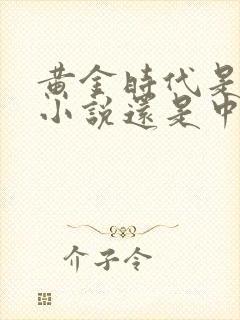 黄金時代是
小說還是中
介子令